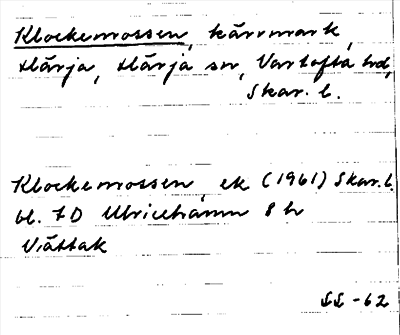 Klockemossen, kärrmark,
Härja, Härja sn, Vartofta hd,
Skar. l.
Klockemossen, ek (1961) Skar. l.
bl. 7D Ulricehamn 8 h
Vättak
SS -62